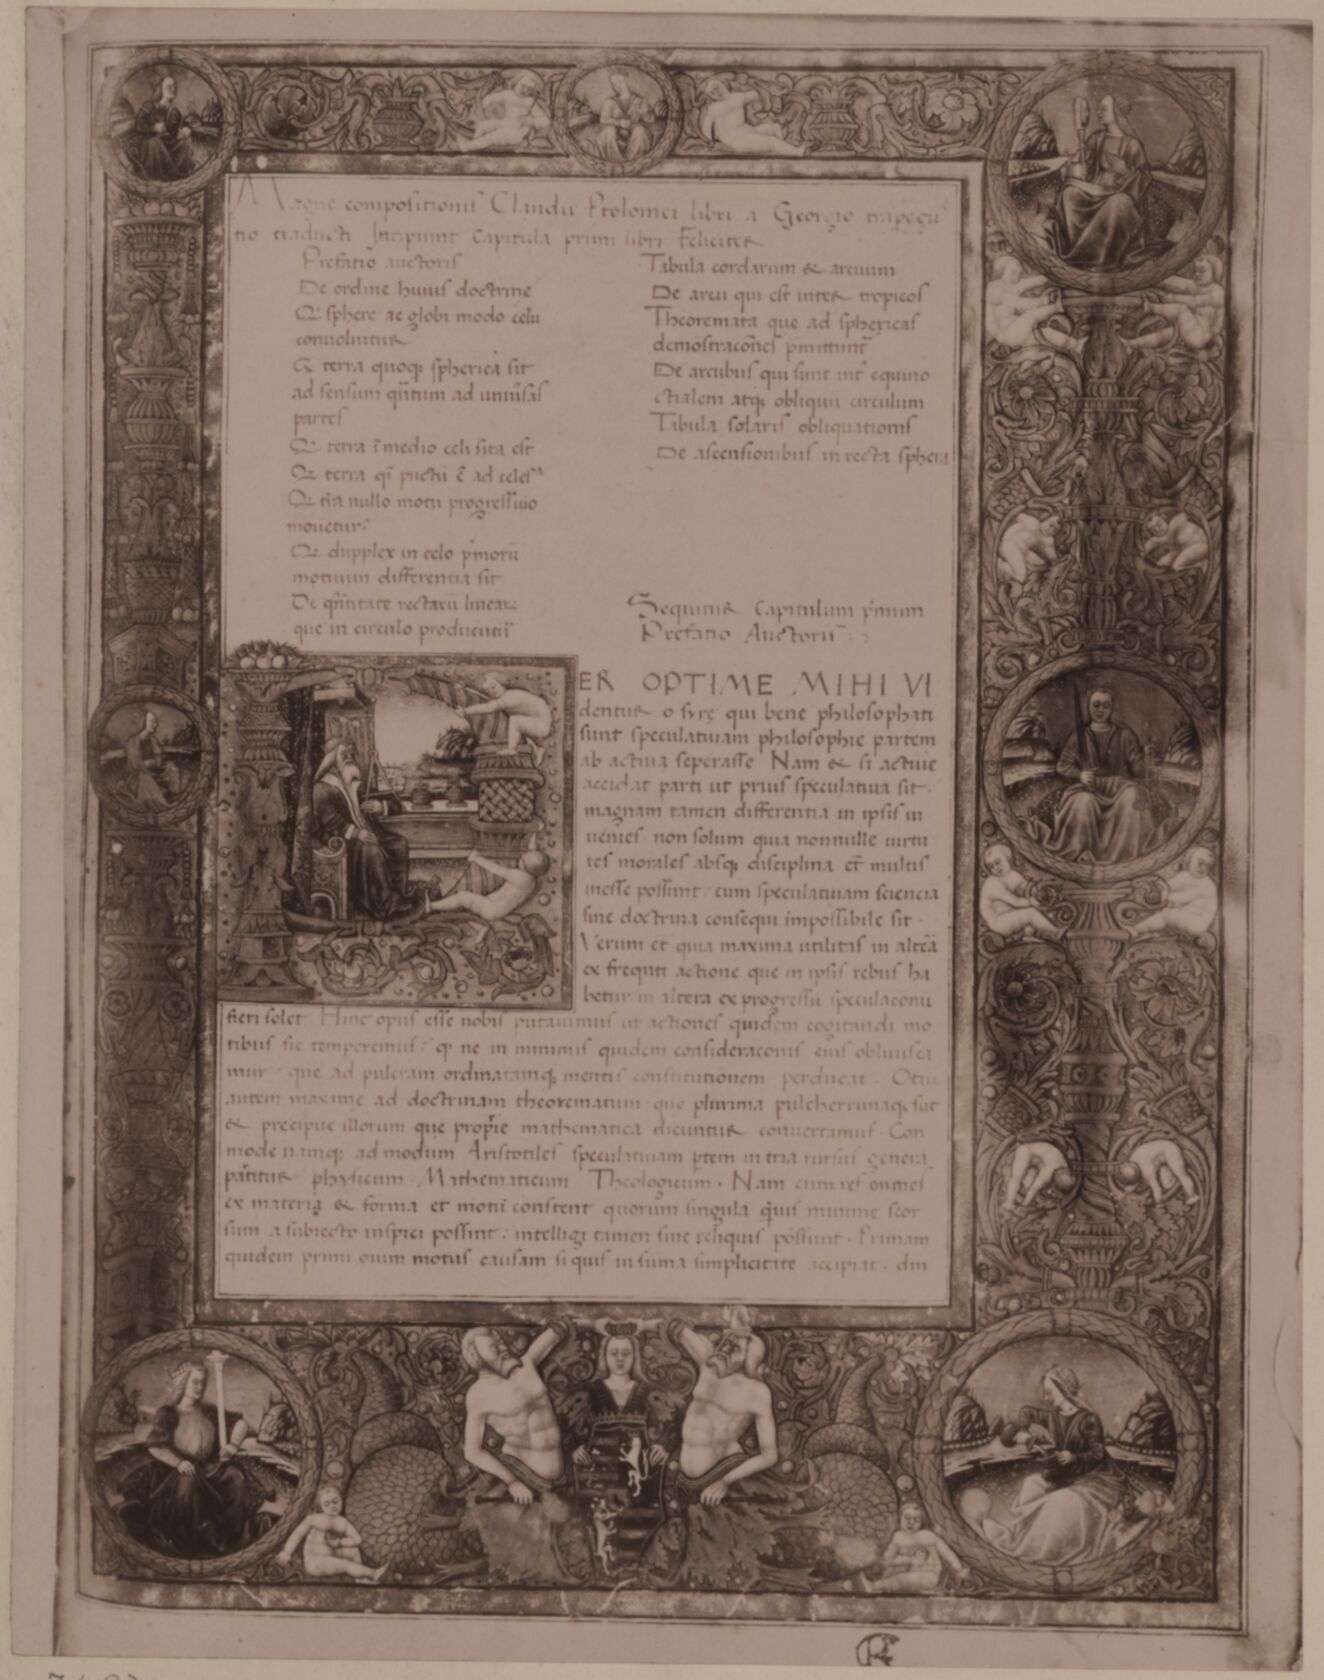 Magne compositionis Claudii Ptolomei libri a Georgio trapezu
tio traducti Incipiunt Capitula primi libri Feliciter
Prefatio auctoris
De ordine huius doctrine
Q sphere ac globi modo celū
convoluitur
Q terra quoq spherica sit
ad sensum qntum ad univsas
partes
Q terra ī medio celi sita est
Q terra qi puctū ē ad celes
Q tra nullo motu progressiuo
mouetur
Q dupplex in celo pmorū
motuum differentia sit
De qntitate rectarū linear
que in circulo producuntū
Tabula cordarum & arcuum
De arcu qui est inter tropicos
Theoremata que ad sphericas
demostracōnes pmittunt
De arcubus qui sunt int equino
ctialem atq obliquū circulum
Tabula solaris obliquationis
De ascensionibus in recta sphera
Sequitur Capitulum pmum
Prefatio Auctoris
ER OPTIME MIHI VI
dentur o syre qui bene philosophati
sunt speculatiuam philosophie partem
ab actiua seperasse Nam & si actiue
accidat parti ut prius speculatiua sit
magnam tamen differentia in ipsis in
uenies non solum quia nonnulle uirtu
tes morales absq disciplina et multis
inesse possunt cum speculatiuam sciencia
sine doctrina consequi impossibile sit
Verum et quia maxima utilitas in alteā
ex frequti actione que in ipsis rebus ha
betur in altera ex progressu speculaconū
fieri solet Hinc opus esse nobis putauimus ut actiones quidem cogitandi mo
tibus sic temperemus q ne in minimis quidem consideraconis eius obliuisca
mur que ad pulcram ordinatamq mentis constitutionem perducat Otiū
autem maxime ad doctrinam theorematum que plurima pulcherrimaq sūt
& precipue illorum que proprie mathematica dicuntur convertamus Con
mode namq ad modum Aristotiles speculatiuam ptem in tria rursus genera
partitur phisicum Mathematicum Theologicum Nam cum res omnes
ex materia & forma et motū constent quorum singula qiuis minime seor
sum a subiecto inspici possint intelligi tamen sine reliquis possunt Primam
quidem primi oium motus causam si quis in suma simplicitate accipiat din